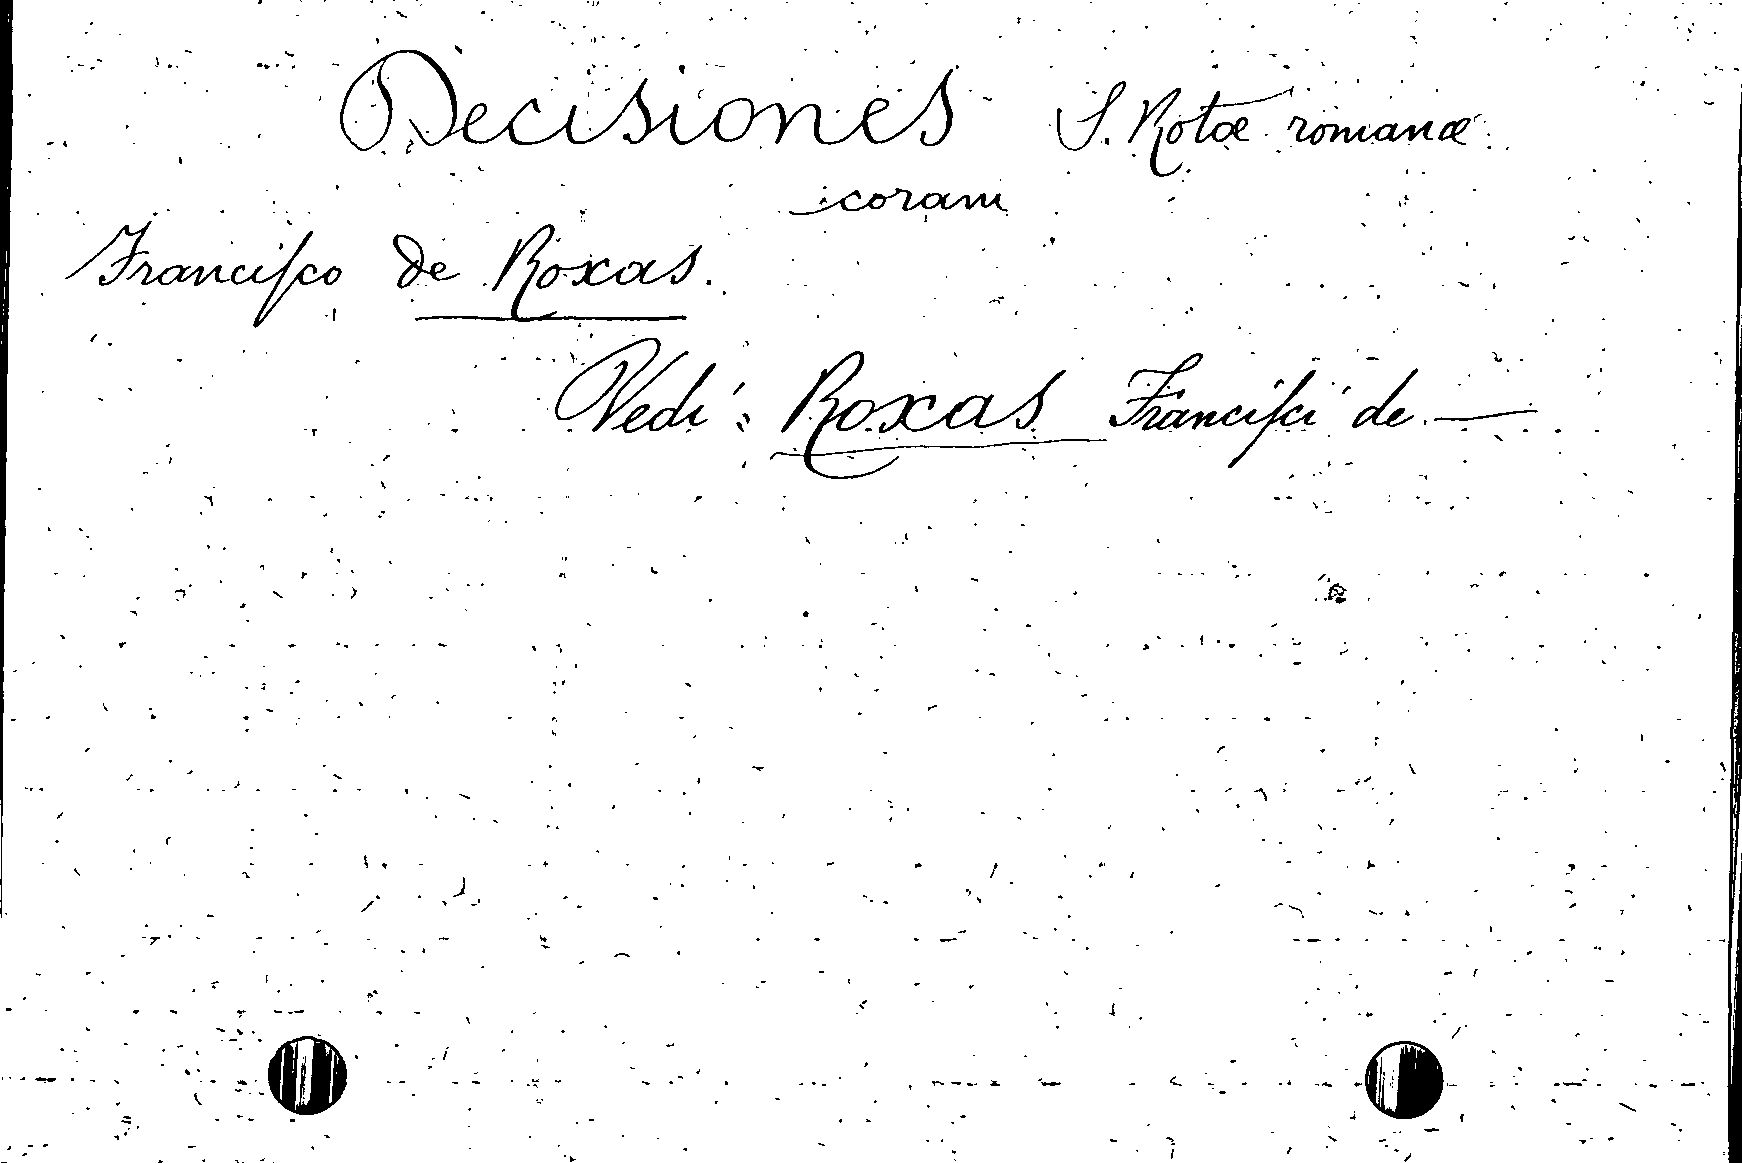 Decisiones S. Rotæ romanæ
coram
Franciſco de Roxas.
Vedi: Roxas Franciſci de —